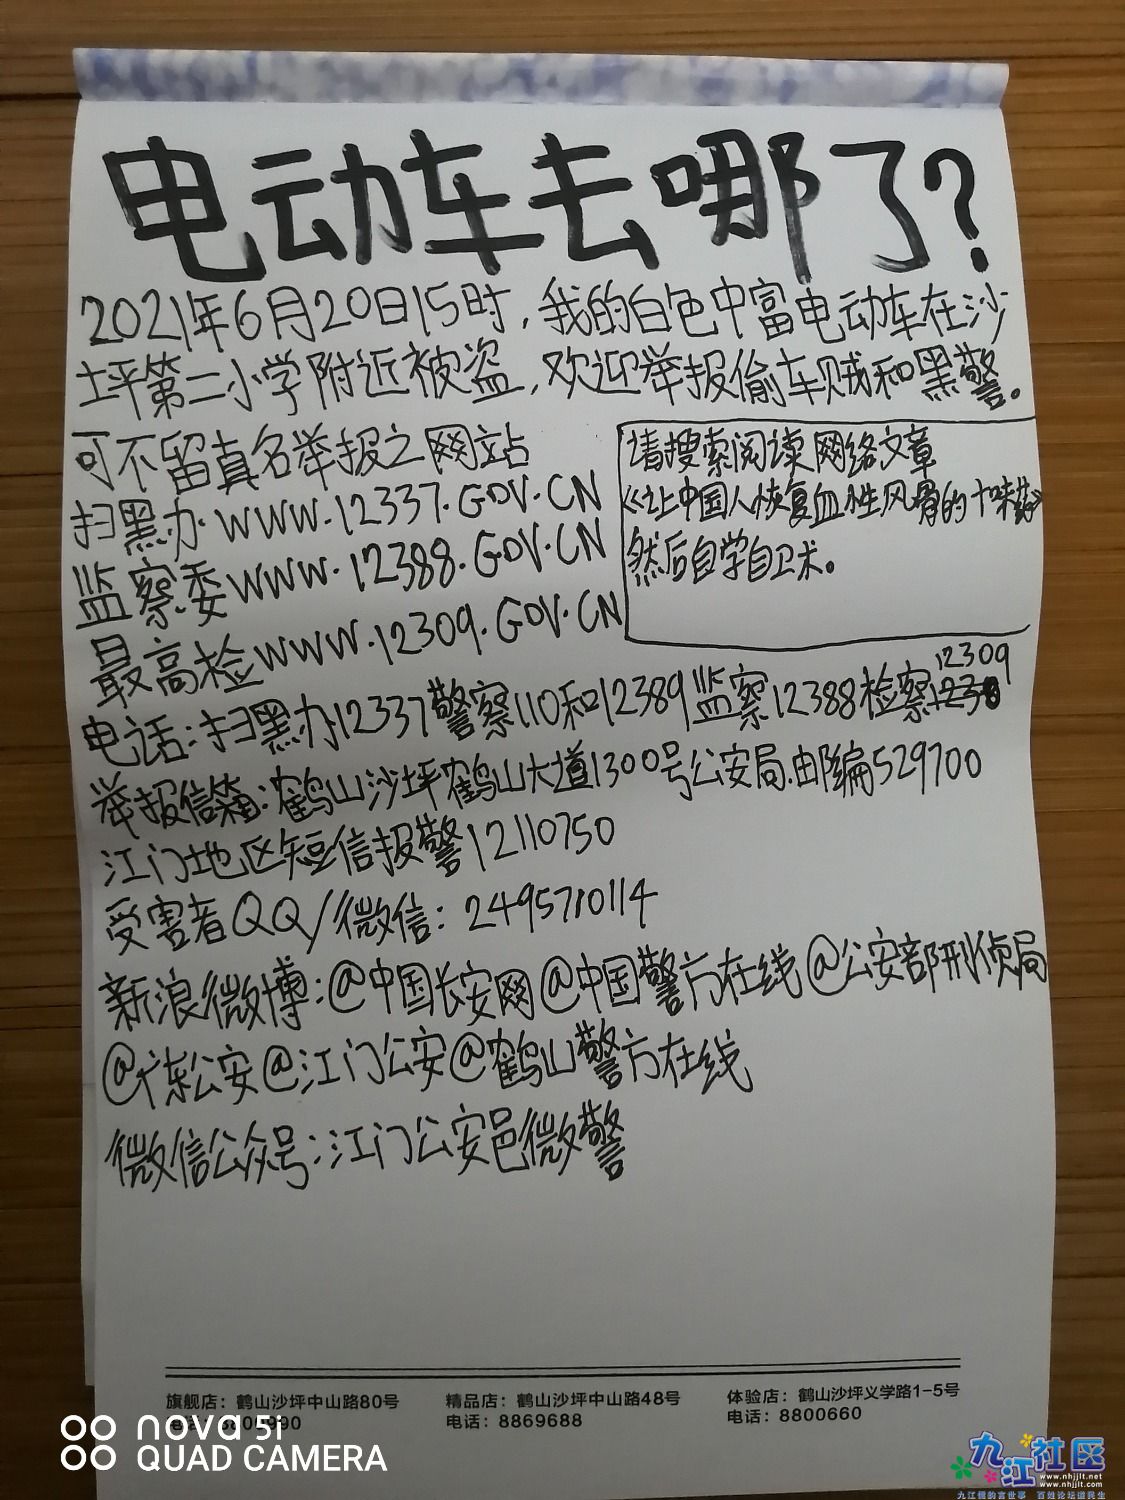 电动车去哪了?
2021年6月20日15时,我的白色中富电动车在沙
坪第二小学附近被盗,欢迎举报偷车贼和黑警。
可不留真名举报之网站
扫黑办·WWW.12337.GOV.CN
监察委WWW.12388.GOV.CN
最高检WWW.12309.GOV.CN
请搜索阅读网络文章
《让中国人恢复血性风骨的十味药》
然后自学自卫术。
电话:扫黑办12337警察110和12389监察12388检察12309
举报信箱:鹤山沙坪鹤山大道1300号公安局.邮编529700
江门地区短信报警12110750
受害者QQ/微信:2495710114
新浪微博:@中国长安网@中国警方在线@公安部刑侦局
@广东公安@江门公安@鹤山警方在线
微信公众号:江门公安邑微警
旗舰店:鹤山沙坪中山路80号
精品店:鹤山沙坪中山路48号
电话:8869688
体验店:鹤山沙坪义学路1-5号
电话:8800660
nova 5i
QUAD CAMERA
九江社区
www.nhjjlt.net
www.nhjjlt.com